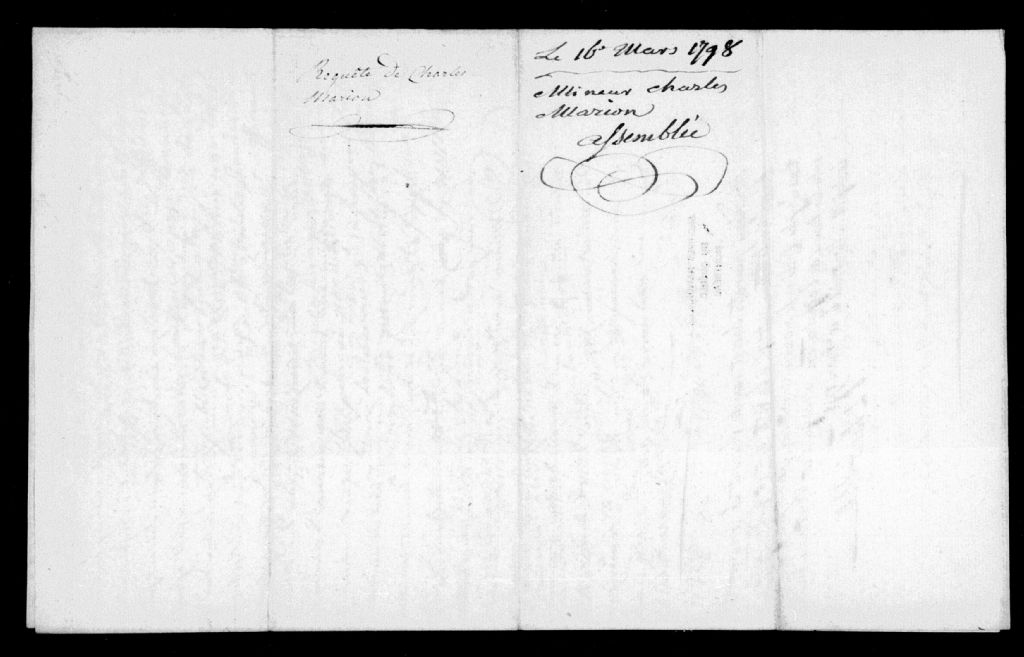 Requête de Charles
Marion
Le 16e Mars 1798
Mineur Charles
Marion
assemblée